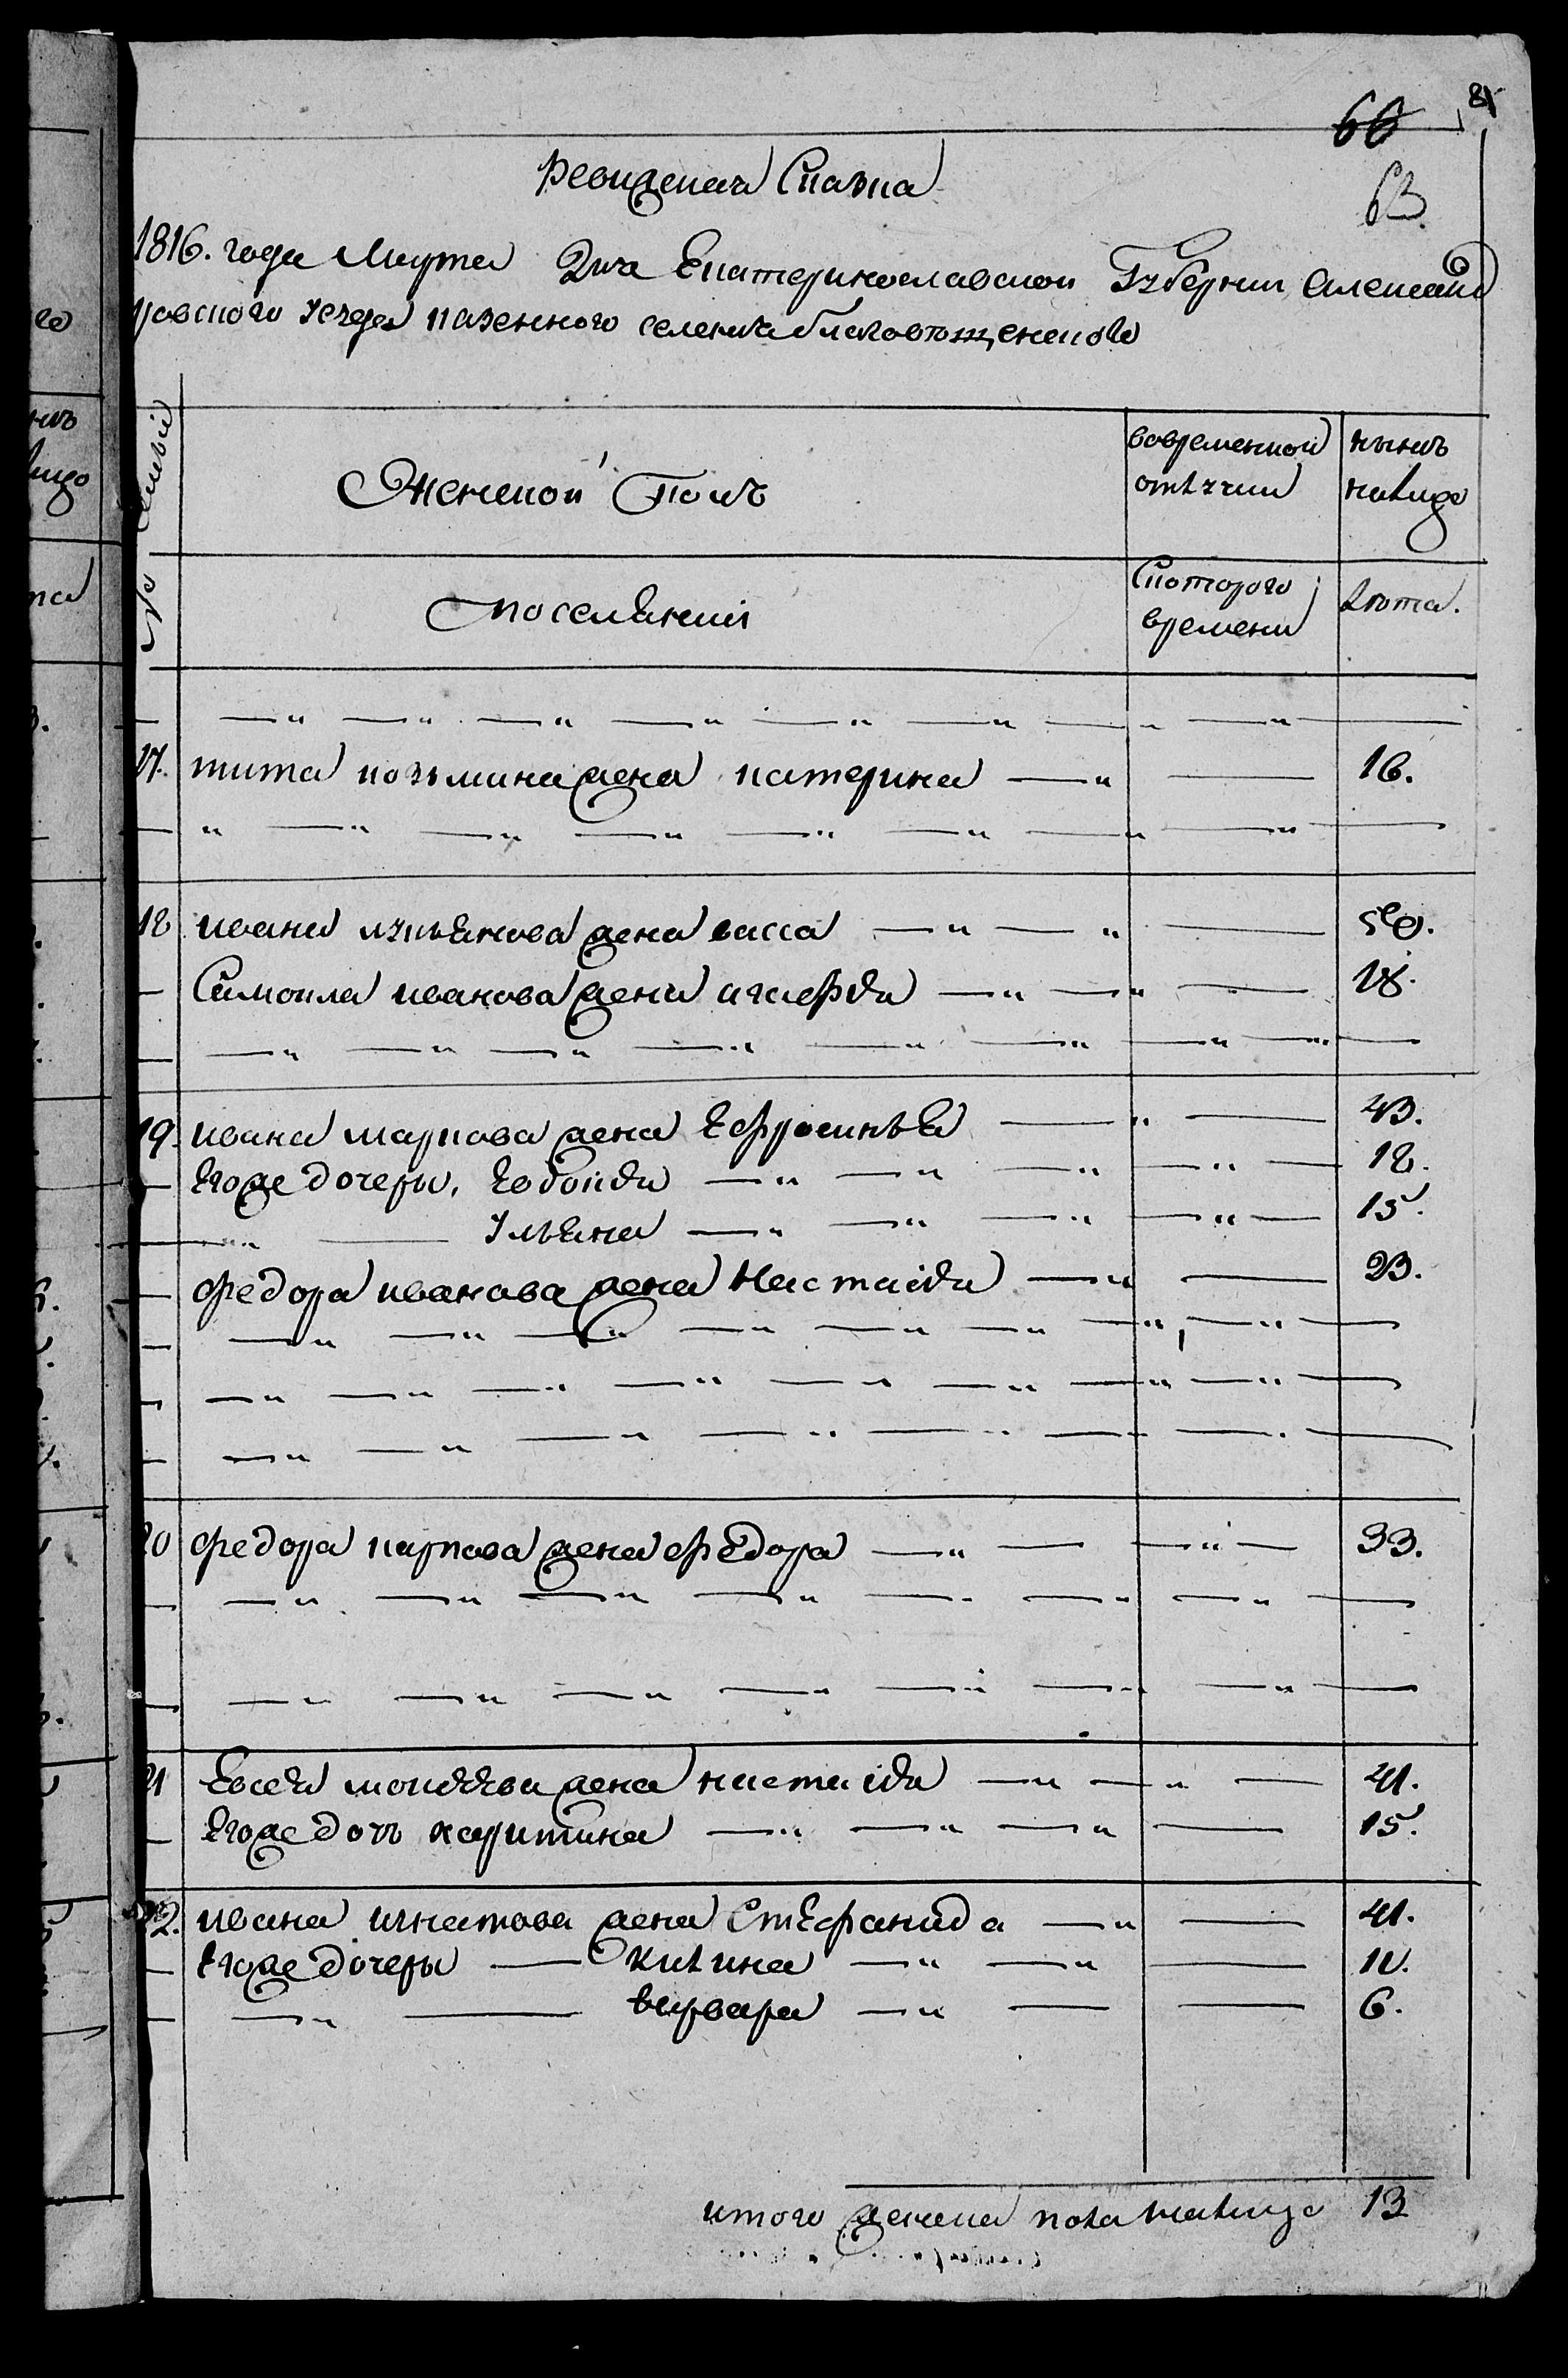 81
66
63
Ревижская Сказка
1816. года Марта Дня Екатеринославской Губернии Александ
ровского уезда казенного селения благовещенского
№ семьи
Женской Полъ
вовременной отлучки
нынъ налицо
поселянки
Скоторого времени
Лѣта.
17. тита козьмина жена катерина 16.
18 ивана лукьянова жена васса 50.
Самоила иванова жена агафья 18.
19. ивана маркова жена Ефросинья 43.
Егоже дочеры, Евдокия 18.
ульяна 15.
федора иванова жена Настасия 23.
20 федора карпова жена федора 33.
21 Евсея моисеева жена настасия 41.
Егоже дочь харитина 15.
22. ивана игнатова жена Стефанида 41.
Егоже дочеры акилина 11.
варвара 6.
итого женска пола налицо 13